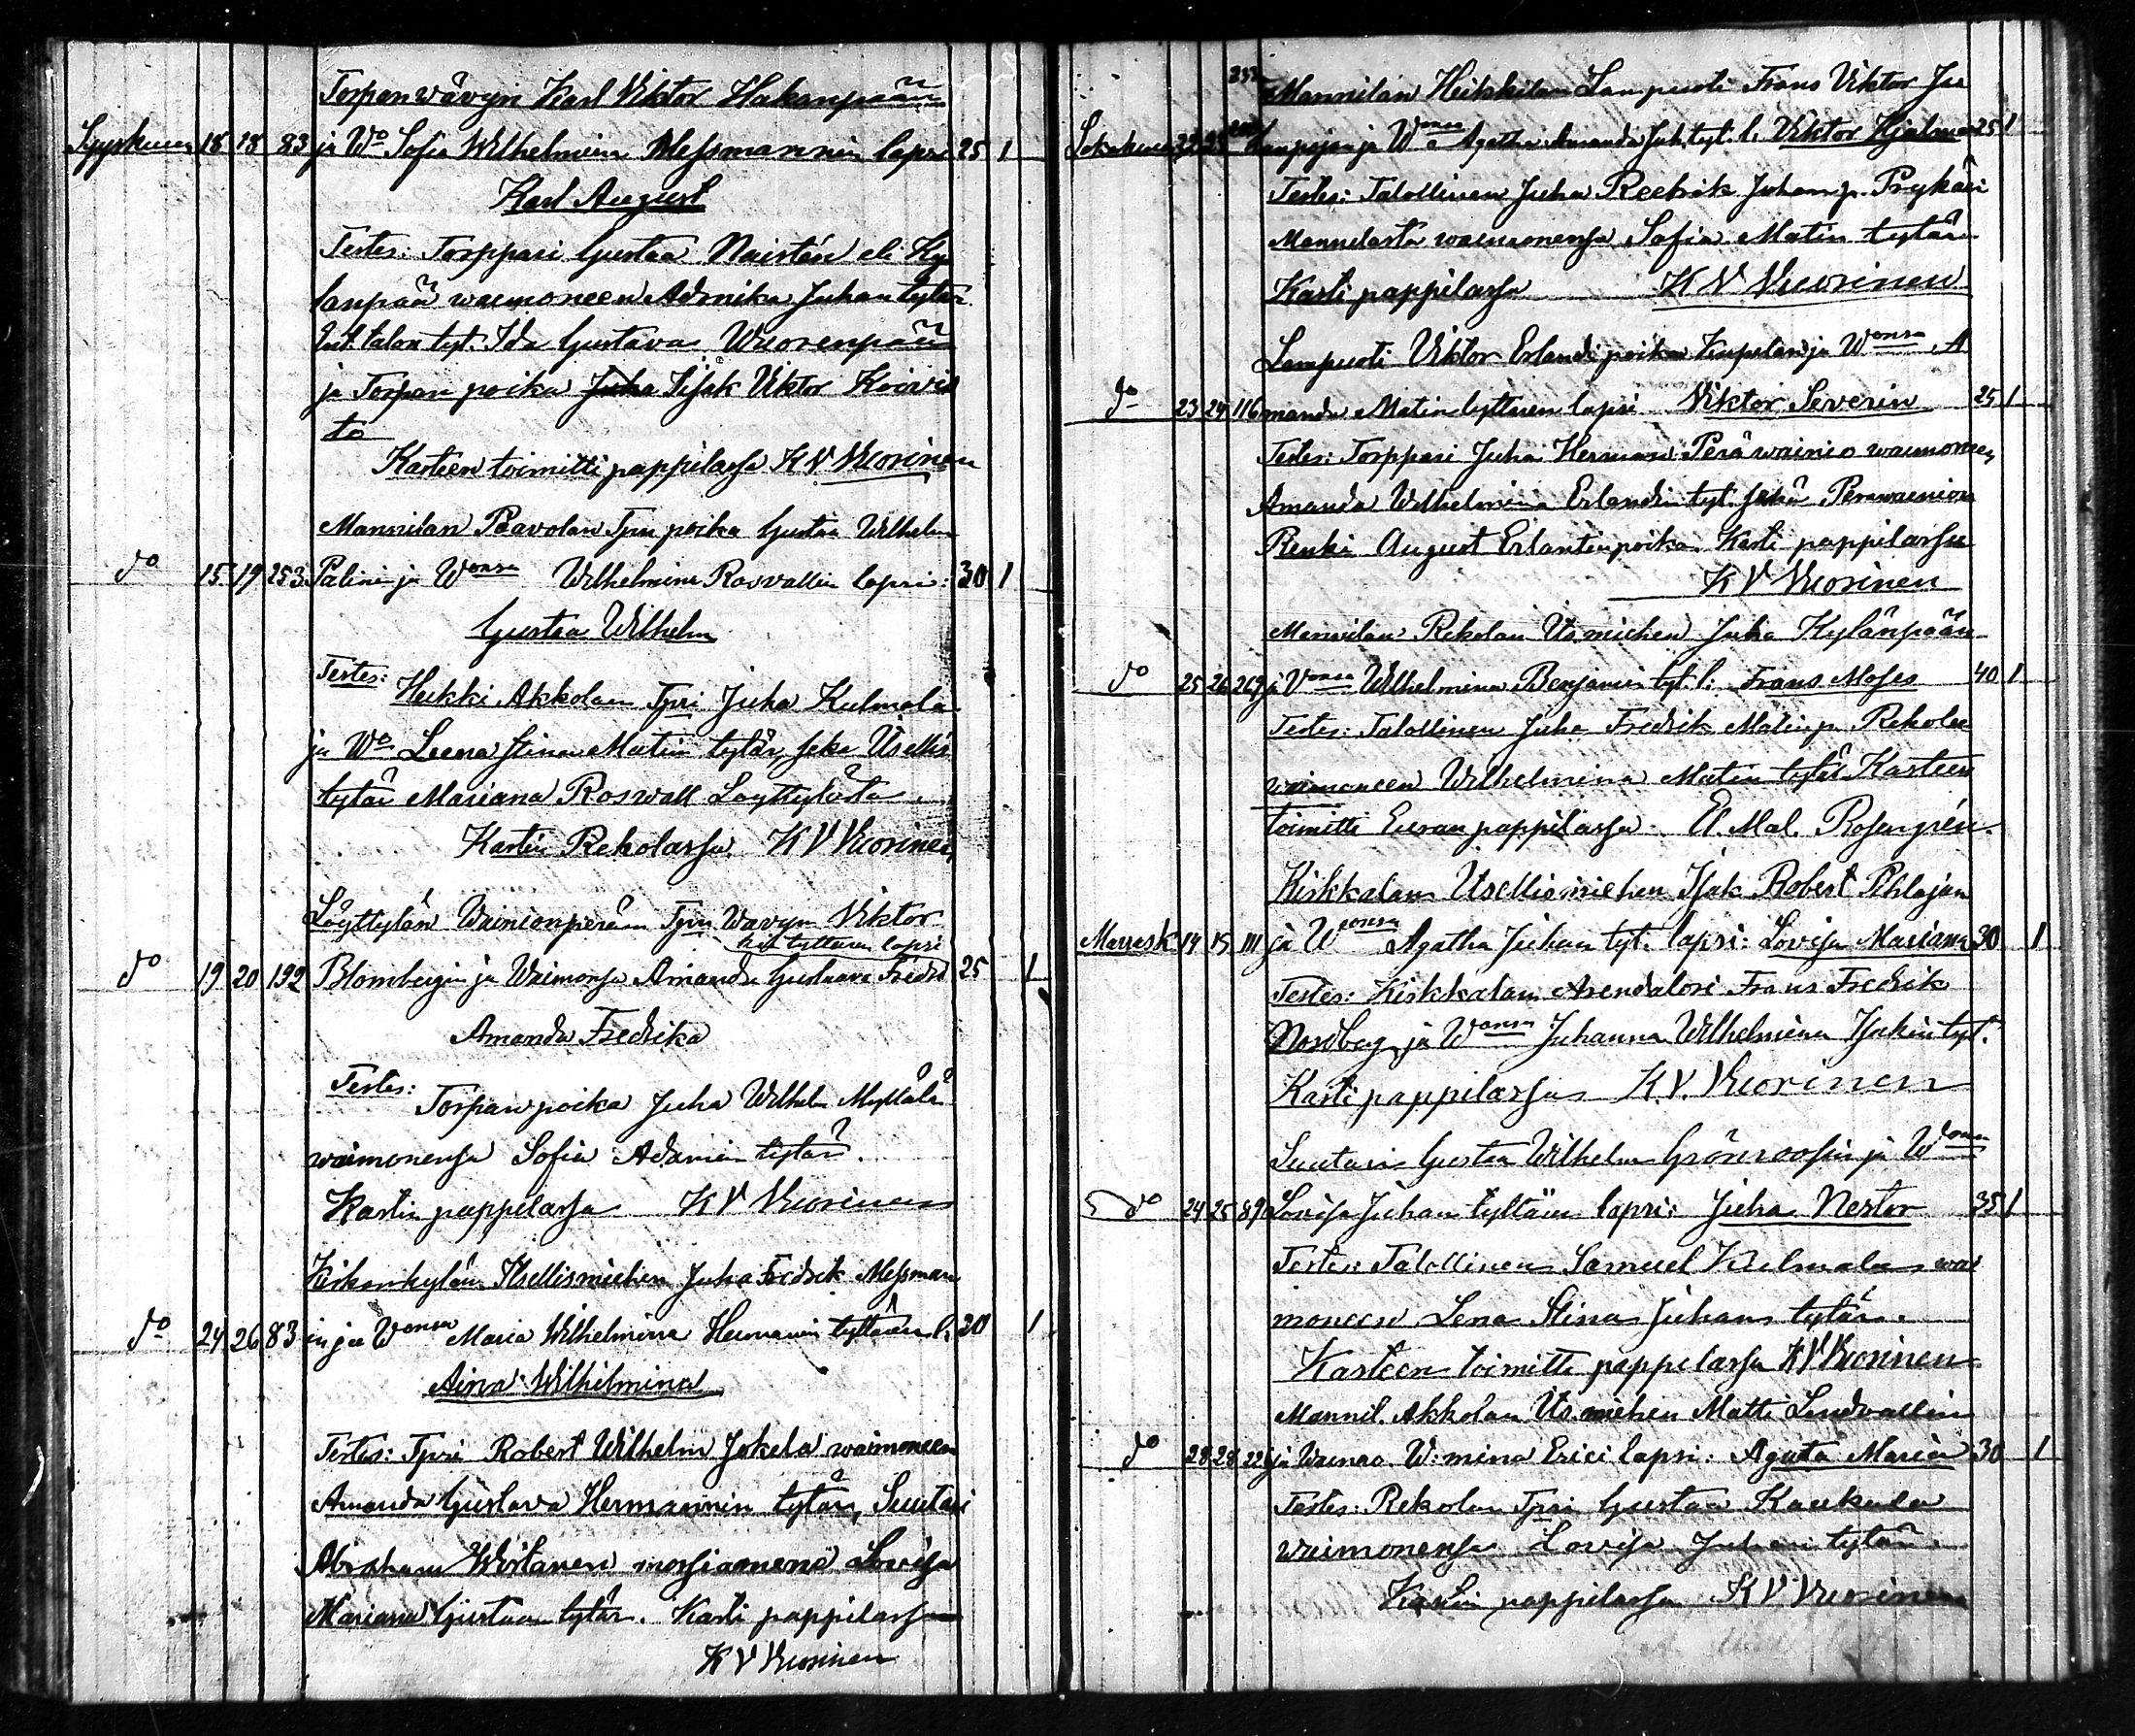 Torpanwävyn Karl Viktor Hakanpään
Syyskuun 18 18 83 ja Wo Sofia Wilhelmiina Messmannin lapsi 25 1
Karl August
Testes: Torppari Gustaa Naistén eli Ky
lanpää waimoneen Adrika Juhan tytär
Ent. talon tyt. Ida Gustava Wuorenpää
ja Torpan poika Juha Isak Viktor Koivis
to
Kasteen toimitti pappilassa K V Vuorinen
Mannilan Paavolan Tpn poika Gustaa Wilhelm
do 15 19 253 Palini ja Wonsa Wilhelmina Rosvallin lapsi: 30 1
Gustaa Wilhelm
Testes:
Heikki Akkolan Tpri Juha Kulmala
ja Wo Leena Stina Matin tytär, seka Itsellis
tytär Mariana Roswall Löyttylästä
Kastiin Rekolassa. K V Vuorinen
Löyttylän Wainionperän Tpn Wävyn Viktor
tyttären lapsi
do 19 20 192 Blombergin ja Waimonsa Amanda Gustaava 25 1
Amanda Fredrika
Testes:
Torpan poika Juha Wilhelm Myllälä
waimonensa Sofia Adamin tytär.
Kastiin pappilassa K V Vuorinen
Kirkonkylän Itsellismiehen Juha Fredrik Messman
do 24 26 83 in ja Wonsa Maria Wilhelmina Hermanin tyttären l. 20 1
Aina Wilhelmina
Testes: Tpri Robert Wilhelm Jokela waimoneen
Amanda Gustava Hermannin tytär, Suutari
Abraham Wirtanen morsiamensa Lovisa
Mariana Gustaan tytär. Kasti pappilassa
K V Vuorinen
Mannilan Heikkilän Lampuoti Frans Viktor Ju
Lokakuun 23 ja Wonsa Agatha Amanda Juh. tyt. l. Viktor Hjalmar 25 1
Testes: Talollinen Juha Reetrik Juhanp. Prykäri
Mannilasta waimonensa Sofia Matin tytär
Kasti pappilassa K V Vuorinen
Lampuoti Viktor Erlandi poika ja Wonsa A
do 23 24 116 manda Matin tyttären lapsi Viktor Severin 25 1
Testes: Torppari Juha Herman Peräwainio waimoneen
Amanda Wilhelmina Erlandin tyt. sekä Peräwainion
Renki August Erlantinpoika Kasti pappilassa
K V Vuorinen
Mannilan Rekolan Its.miehen Juha Kylänpään
do 25 26 269 ja Vonsa Wilhelmina Benjamin tyt. l: Frans Moses 40 1
Testes: Talollinen Juha Fredrik Matinp. Rekola
waimoneen Wilhelmina Matin tytär Kasteen
toimitti Euran pappilassa El. Mal. Rosengrén.
Kirkkalan Itsellismiehen Isak Robert Pihlajan
Marrask 14 15 111 ja Wonsa Agatha Juhan tyt. lapsi: Lovisa Mariana 30 1
Testes: Kirkkalan Arendatori Frans Fredrik
Nordberg ja Wonsa Juhanna Wilhelmina Isakin tyt.
Kasti pappilassa K. V. Vuorinen
Suutari Gustaa Wilhelm Grönroosin ja Wonsa
do 24 25 89 Lovisa Juhan tyttären lapsi: Juha Nestor 35 1
Testes: Talollinen Samuel Kulmala wai
moneen Lena Stina Juhan tytär.
Kasteen toimitti pappilassa K V Vuorinen
Mannil. Akkolan Its.miehen Matti Lindvallin
do 28 28 ja Waimo W:mina Erici lapsi: Agata Maria 30 1
Testes: Rekolan Tpri Gustaa Kaukola
waimonensa Lovisa Juhan tytär.
Kastiin pappilassa K V Vuorinen